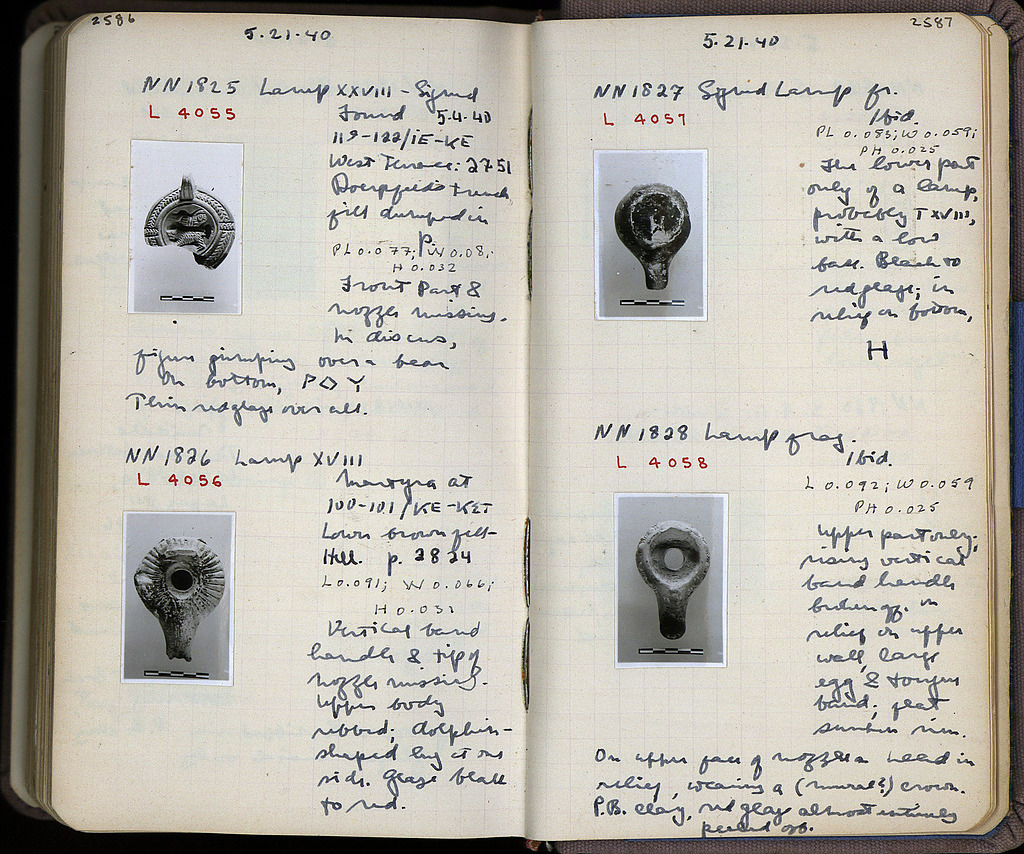 2586
5.21.40
NN 1825 Lamp XXVIII - Signed
L 4055
Found 5.4.40
119-122/ΙΕ-ΚΕ
West Terrace: 2751
Doerpfeld's trench
fill dumped in
P.
PL 0.077; W 0.08;
H 0.032
Front Part &
nozzle missing.
In discus,
figure jumping over a bear
On bottom, ΡΟΥ
Thin red glaze over all.
NN 1826 Lamp XVIII
L 4056
Martyra at
100-101/ΚΕ-ΚΣΤ
Lower brown fill-
Hell. p. 2824
L 0.091; W 0.066;
H 0.031
Vertical band
handle & tip of
nozzle missing.
Upper body
ribbed; dolphin-
shaped lug at one
side. Glaze black
to red.
2587
5.21.40
NN 1827 Signed Lamp fr.
L 4057
Ibid.
PL 0.083; W 0.059;
PH 0.025
The lower part
only of a lamp,
probably T XVIII,
with a low
base. Black to
red glaze; in
relief on bottom,
Η
NN 1828 Lamp frag.
L 4058
Ibid.
L 0.092; W 0.059
PH 0.025
Upper part only;
rising vertical
band handle
broken off. In
relief on upper
wall, large
egg & tongue
band; flat
sunken rim.
On upper face of nozzle a head in
relief, wearing a (mural?) crown.
P.B. clay, red glaze almost entirely
peeled off.